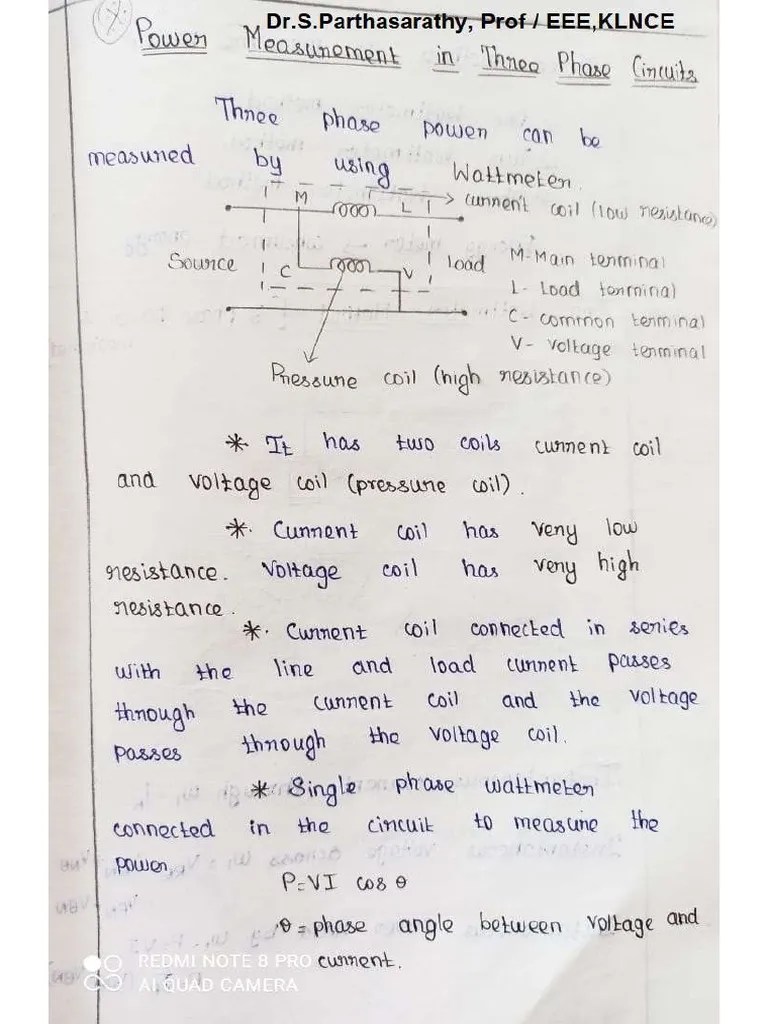 Dr.S.Parthasarathy, Prof / EEE,KLNCE
Power Measurement in Three Phase Circuits
Three phase power can be
measured by using Wattmeter.
M L current coil (low resistance)
Source C V load M-Main terminal
L- Load terminal
C- common terminal
V- voltage terminal
Pressure coil (high resistance)
* It has two coils current coil
and voltage coil (pressure coil).
*. Current coil has very low
resistance. Voltage coil has very high
resistance.
*. Current coil connected in series
with the line and load current passes
through the current coil and the voltage
passes through the voltage coil.
* Single phase wattmeter
connected in the circuit to measure the
power.
P=VI cos θ
θ = phase angle between voltage and
current.
REDMI NOTE 8 PRO
AI QUAD CAMERA